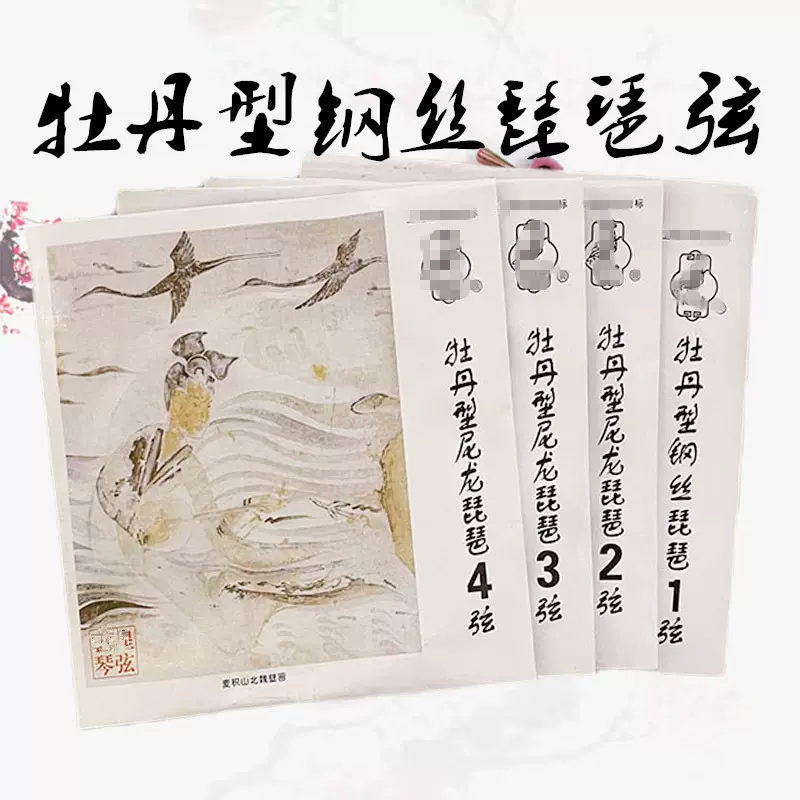 牡丹型钢丝琵琶弦
标
标
牡丹型尼龙琵琶4弦
牡丹型尼龙琵琶3弦
牡丹型尼龙琵琶2弦
牡丹型钢丝琵琶1弦
琴弦
麦积山北魏壁画